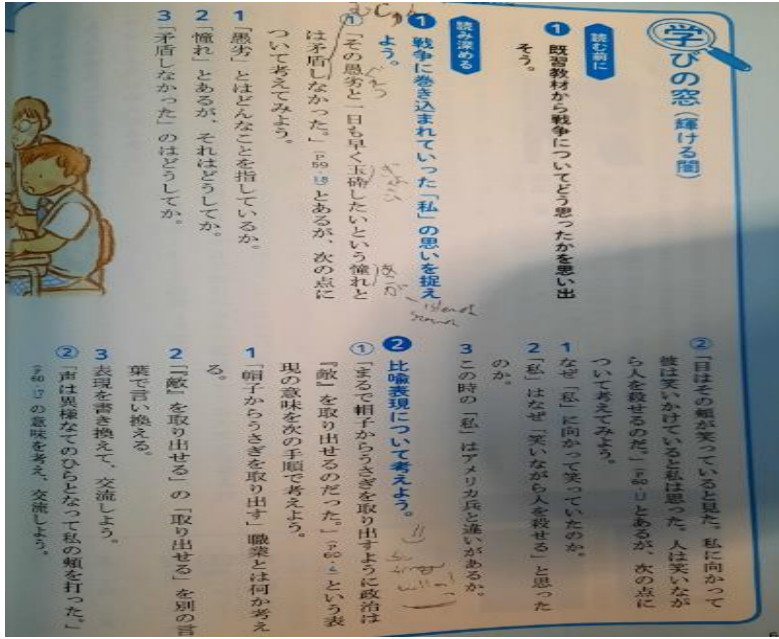 学びの窓（輝ける闇）
読む前に
1 既習教材から戦争についてどう思ったかを思い出
そう。
読み深める
1 戦争に巻き込まれていった「私」の思いを捉え
よう。
①「その愚劣と一日も早く玉砕したいという憧れと
は矛盾しなかった。」（p59・18）とあるが、次の点に
ついて考えてみよう。
1 「愚劣」とはどんなことを指しているか。
2 「憧れ」とあるが、それはどうしてか。
3 「矛盾しなかった」のはどうしてか。
②「目はその頰が笑っていると見た。私に向かって
彼は笑いかけていると私は思った。人は笑いなが
ら人を殺せるのだ。」（p60・13）とあるが、次の点に
ついて考えてみよう。
1 なぜ「私」に向かって笑っていたのか。
2 「私」はなぜ「笑いながら人を殺せる」と思った
のか。
3 この時の「私」はアメリカ兵と違いがあるか。
2 比喩表現について考えよう。
①「まるで帽子からうさぎを取り出すように政治は
『敵』を取り出せるのだった。」（p60・4）という表
現の意味を次の手順で考えよう。
1 「帽子からうさぎを取り出す」職業とは何か考え
る。
2 「『敵』を取り出せる」の「取り出せる」を別の言
葉で言い換える。
3 表現を書き換えて、交流しよう。
②「声は異様なてのひらとなって私の頰を打った。」
（p60・17）の意味を考え、交流しよう。